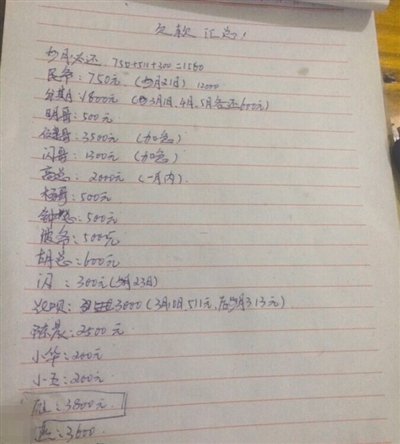 欠款汇总:
当月必还: 750+511+300=1560
民爷: 750元 (当月21日) 12000
分期: 1800元 (3月1日、4月、5月各还600元)
明哥: 500元
健哥: 3500元 (加急)
闪哥: 1300元 (加急)
高总: 2000元 (一月内)
杨哥: 500元
钟总: 500元
波爷: 500元
胡总: 600元
闪: 300元 (当月23日)
呗: 3000 (3月10日,511元,后当月313元)
陈晨: 2500元
小华: 200元
小五: 200元
3800元
燕: 3600